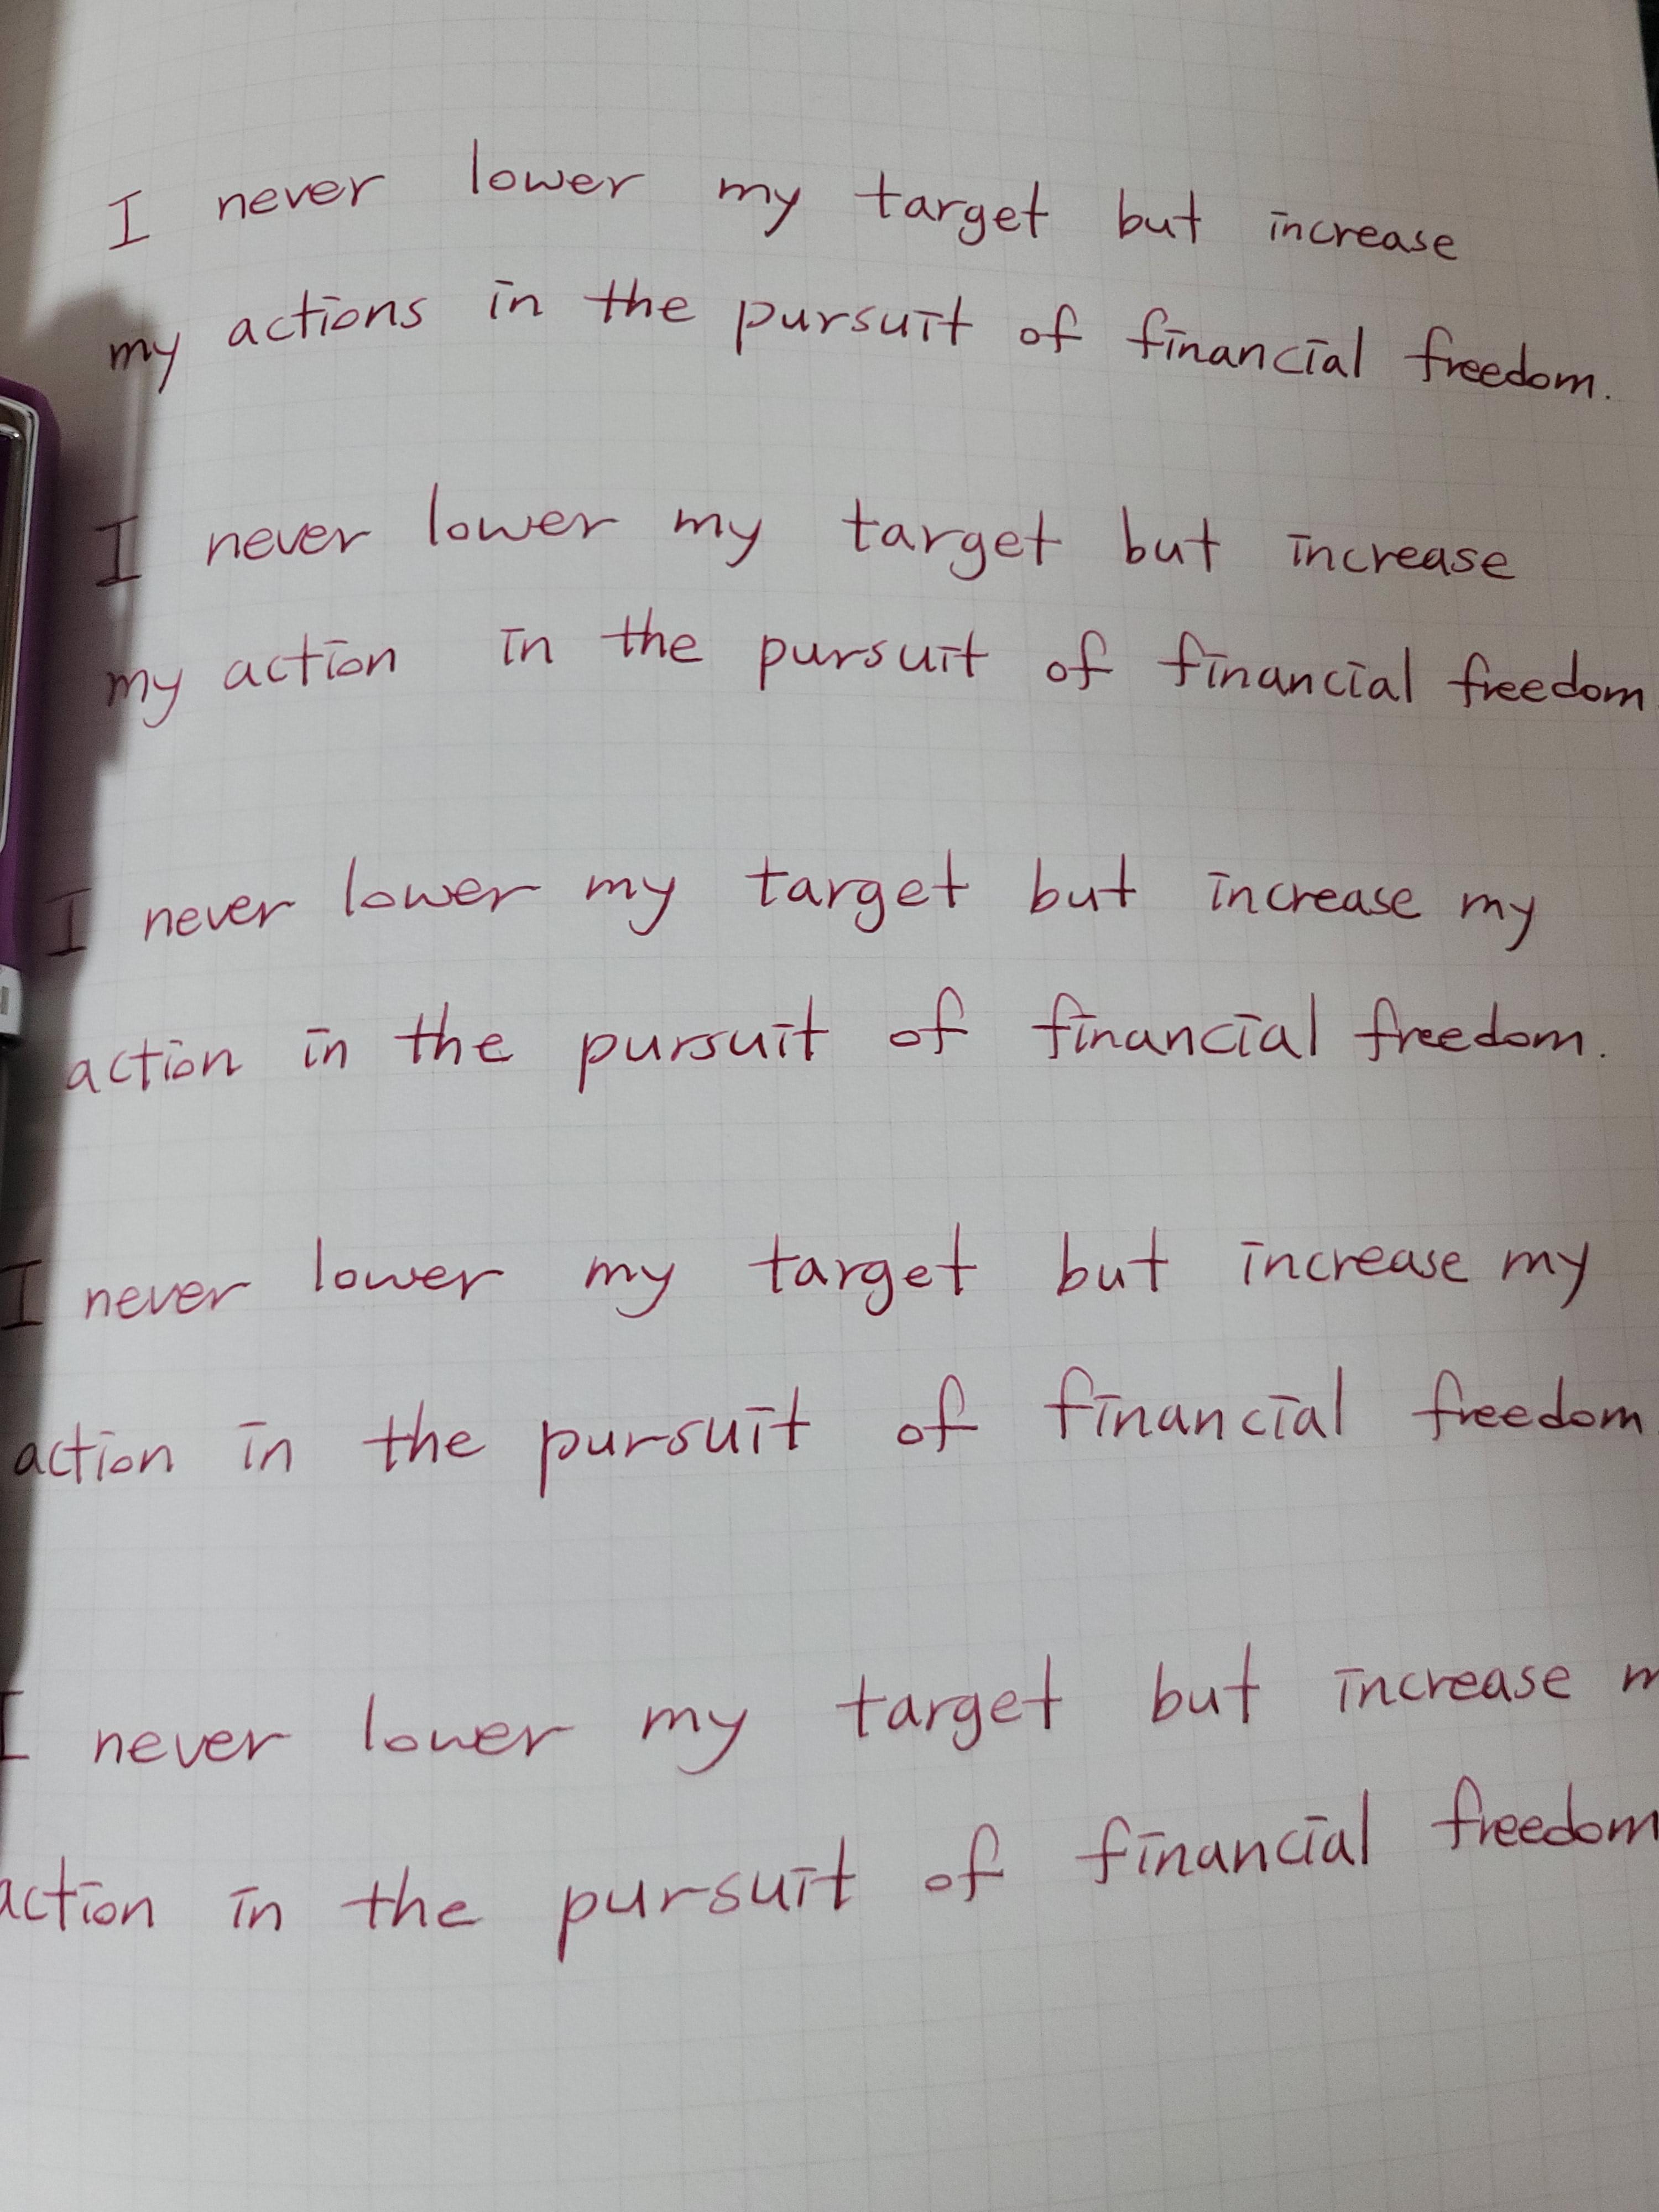 I never lower my target but increase
my actions in the pursuit of financial freedom.
I never lower my target but increase
my action in the pursuit of financial freedom
I never lower my target but increase my
action in the pursuit of financial freedom.
I never lower my target but increase my
action in the pursuit of financial freedom
I never lower my target but increase m
action in the pursuit of financial freedom